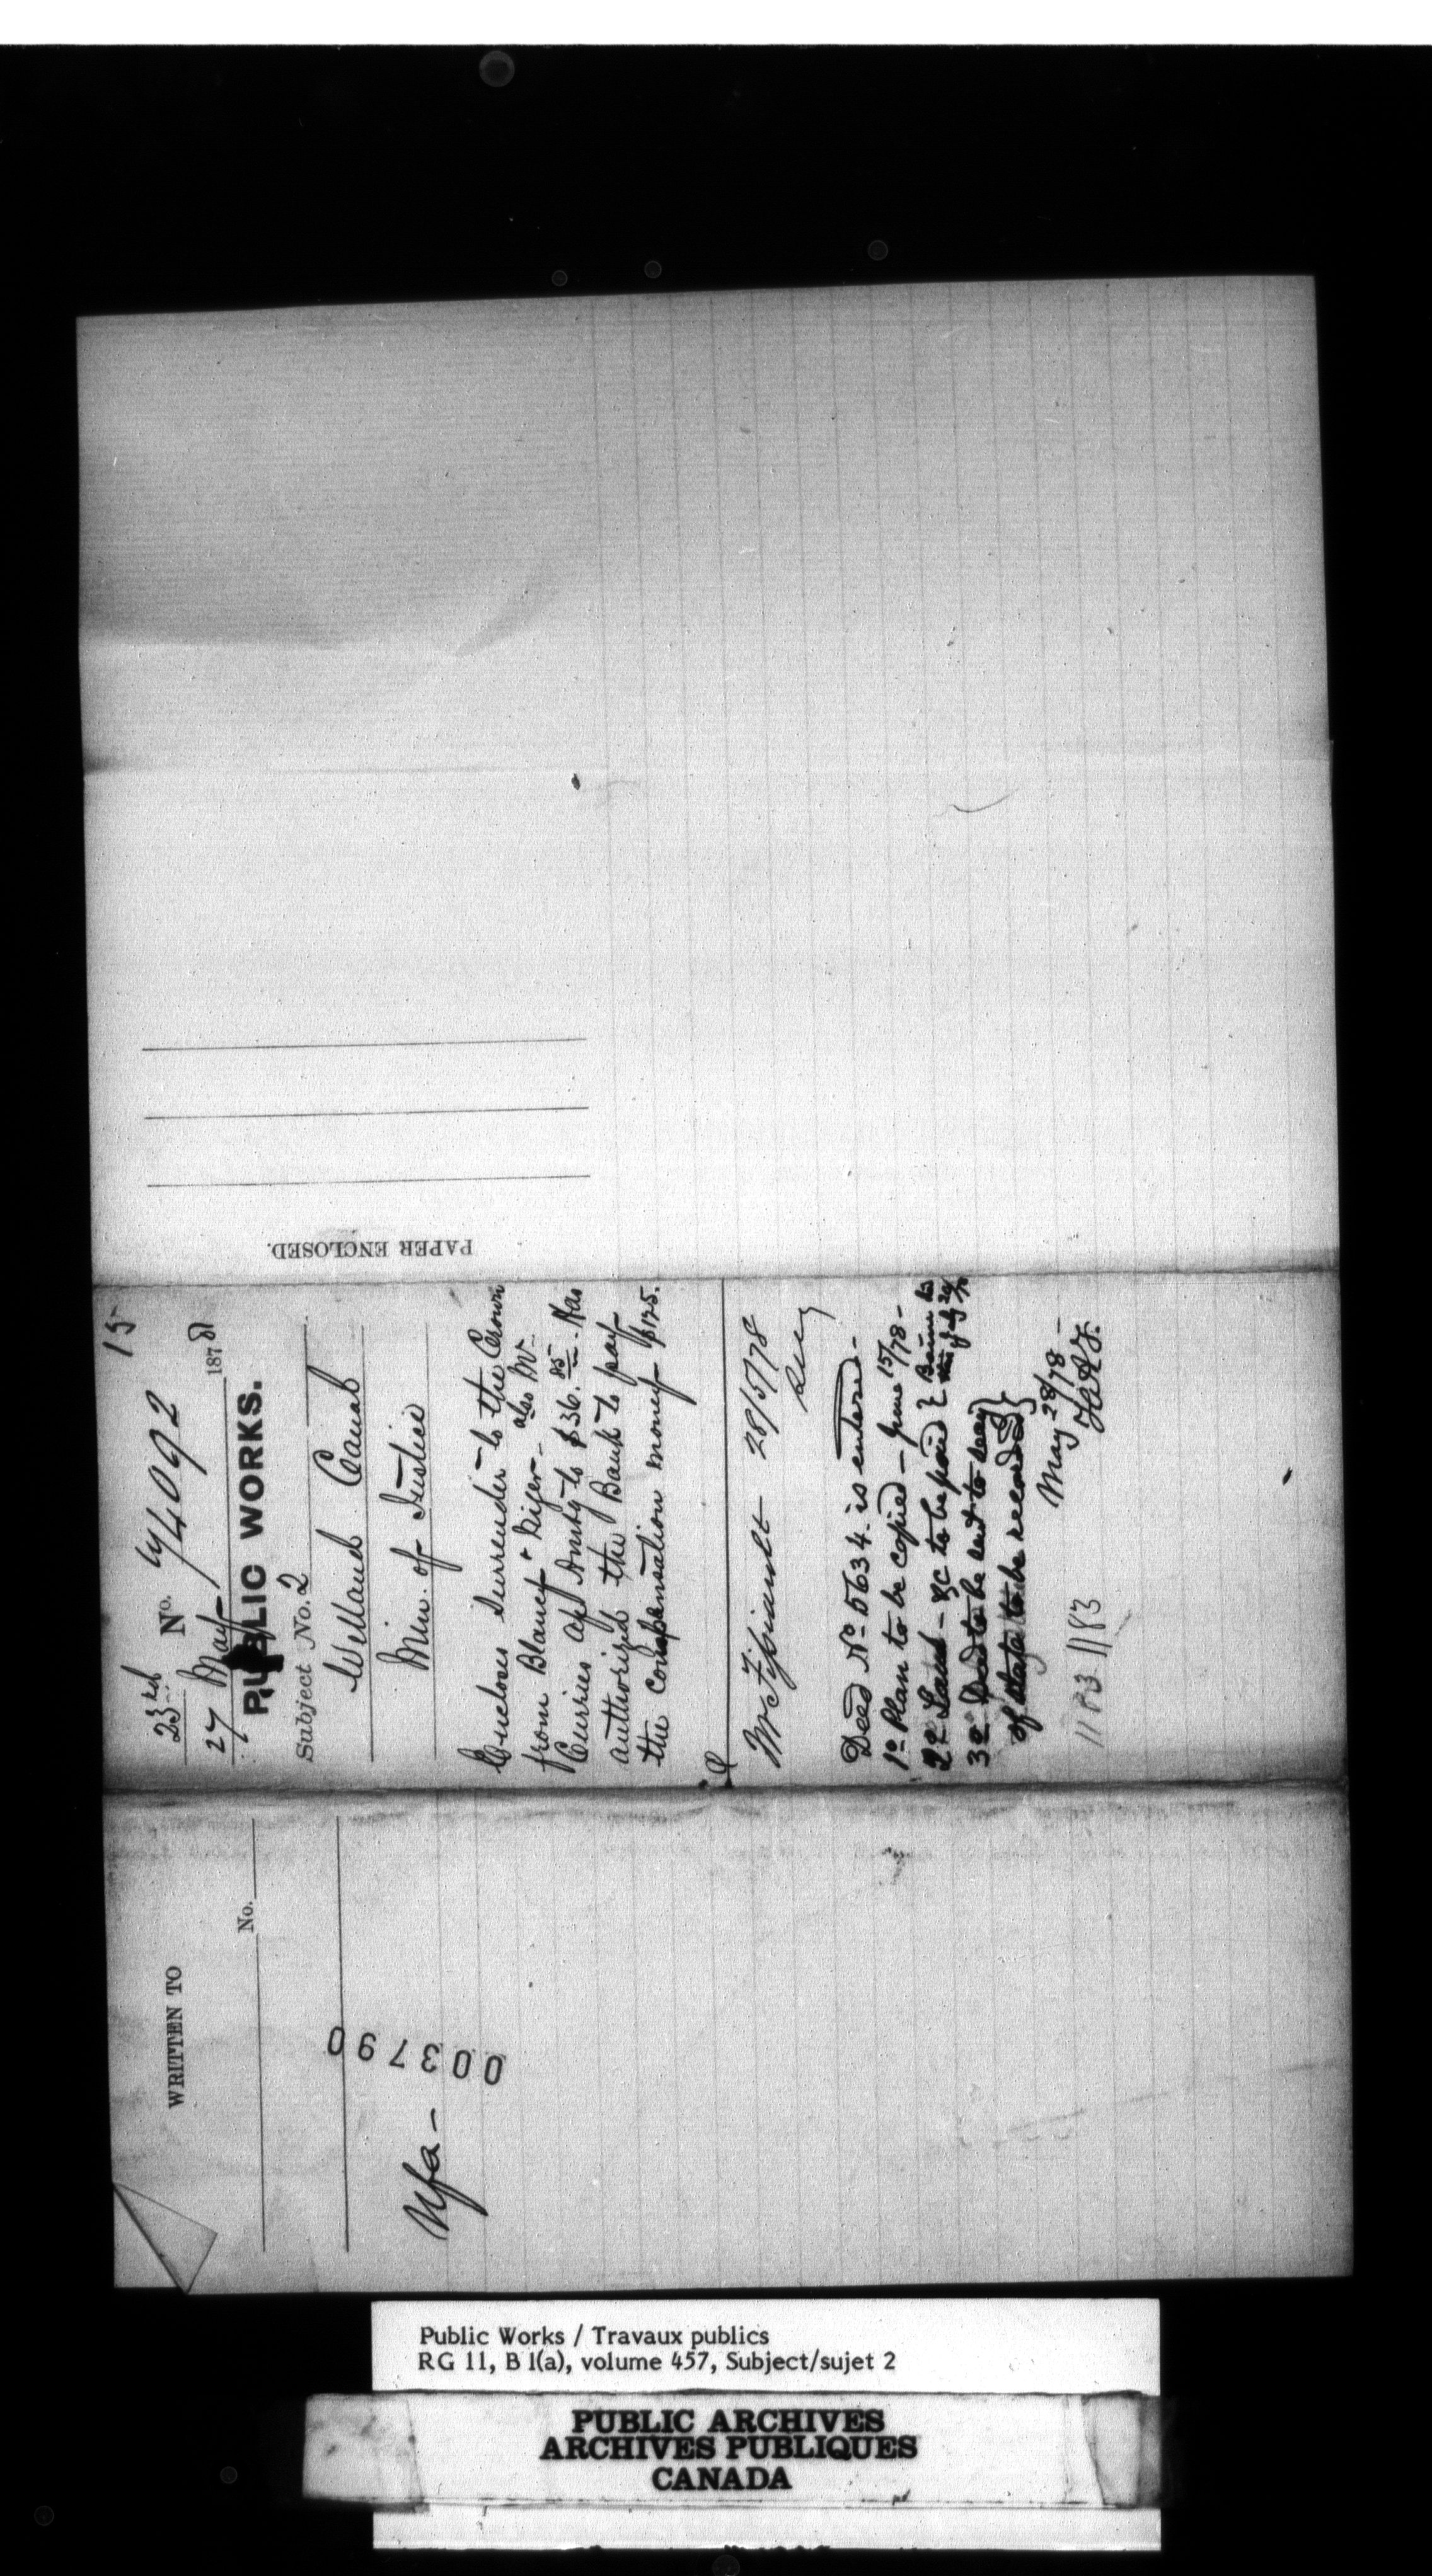 15
23rd No. 74092
27 May 1878
PUBLIC WORKS.
Subject No. 2
Welland Canal
Min. of Justice
Encloses Surrender to the Crown
from Blaney & also W.
Curries a/c Amtg to $36.85. Has
authorized the Bank to pay
the compensation money $125.
28/5/78
Deed No. 5634 is enclosed-
1o Plan to be copied - June 15/78-
2o Land - &c to be posted
3o Deed to be sent to Secy
of State to be recorded
May 28/78 -
1183 1183
PAPER ENCLOSED.
WRITTEN TO
No.
003790
Public Works / Travaux publics
RG 11, B 1(a), volume 457, Subject/sujet 2
PUBLIC ARCHIVES
ARCHIVES PUBLIQUES
CANADA